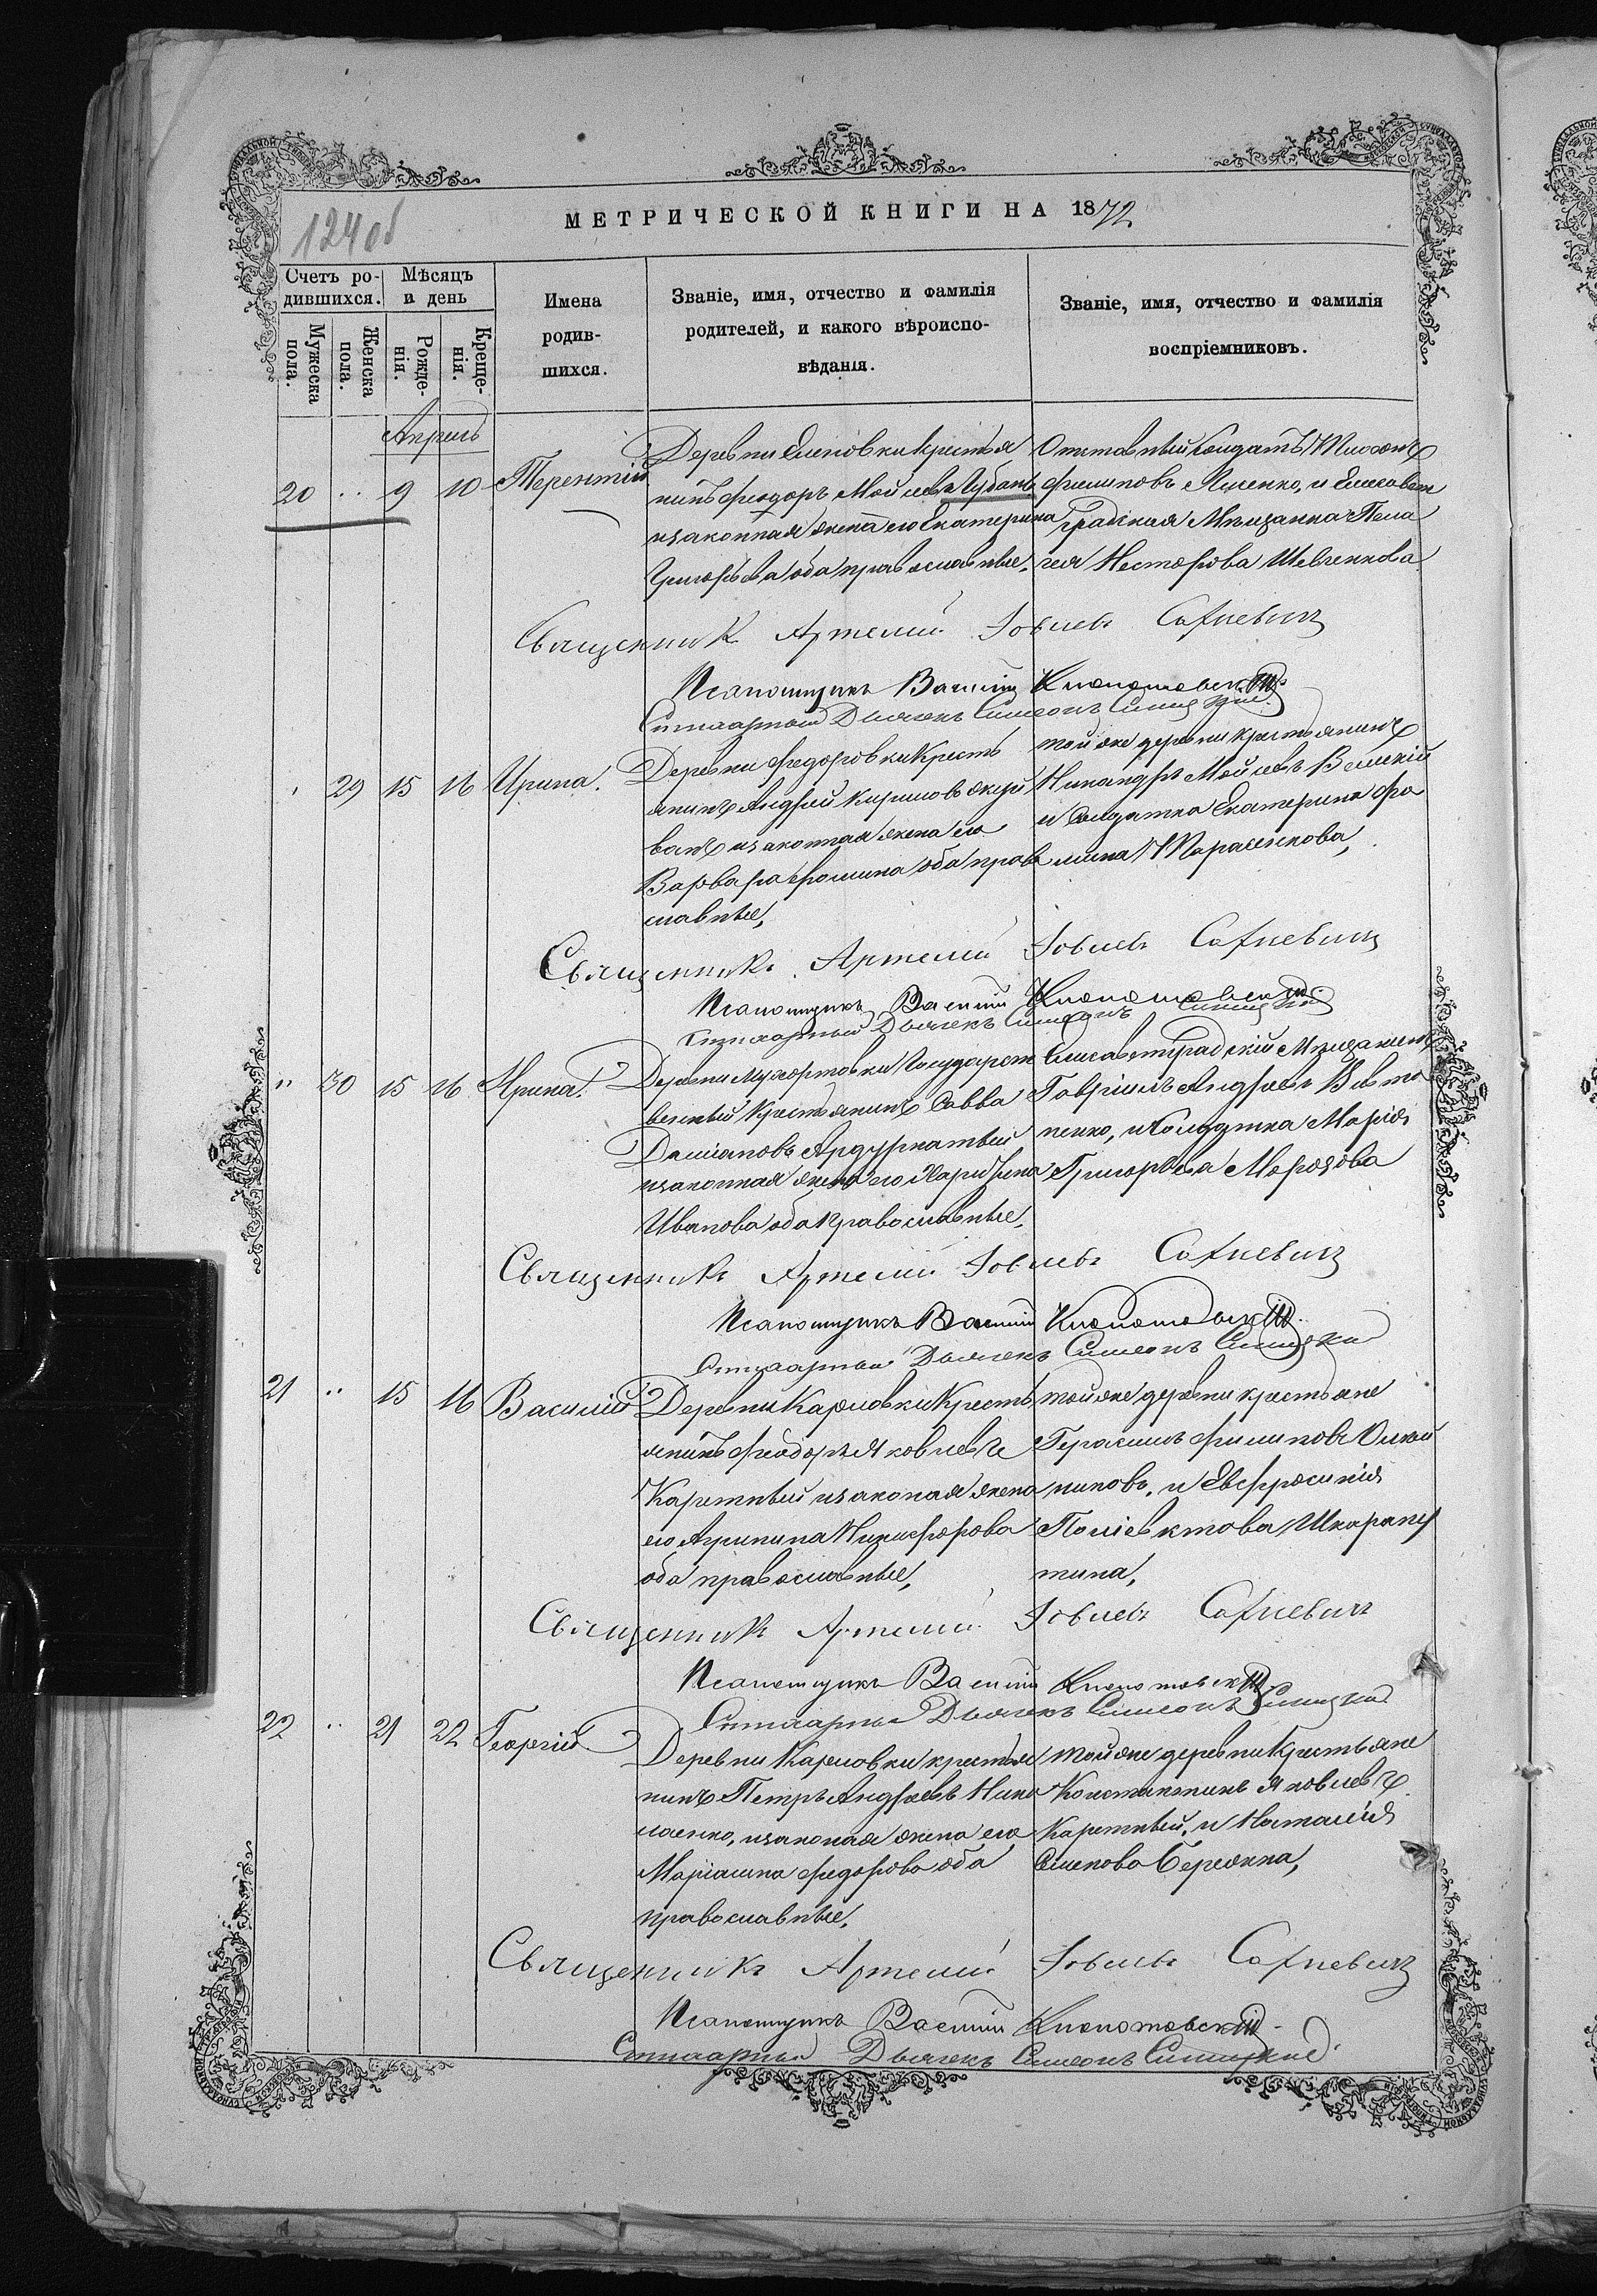 124 об
МЕТРИЧЕСКОЙ КНИГИ НА 1872
Счетъ ро-
дившихся.
Мужеска
пола.
Женска
пола.
Мѣсяцъ
и день
Рожде-
нія.
Креще-
нія.
Имена
родив-
шихся.
Званіе, имя, отчество и фамилія
родителей, и какого вѣроиспо-
вѣданія.
Званіе, имя, отчество и фамилія
воспріемниковъ.
Апрель
20 .. 9 10 Терентій
Деревни Еленовки крестья
нинъ Феодоръ Мойсеевъ Губань
и законная жена его Екатерина
Григорьева оба православные,
Отставный солдатъ
Филиповъ Лисенко, и Елисавет
градская Мѣщанка Пела
гея Несторова Шевченкова
Священникъ Артемій Іовлевъ Сахневичъ
Псаломщикъ Василій
Дьячекъ Симеонъ
29 15 16 Ирина.
Деревни Федоровки Кресть
янинъ Андрей Кириловъ
и законная жена его
Варвара Фомина оба право
славные,
той же деревни крестьянинъ
Никандръ Мойсеевъ Великій
и Солдатка Екатерина Фо
мина Тарасенкова,
Священникъ Артемій Іовлевъ Сахневичъ
Псаломщикъ Василій
Дьячекъ Симеонъ
" 30 15 16 Ирина.
Деревни Государст
венный Крестьянинъ Савва
Даміановъ
и законная жена его Харитина
Иванова оба православные,
Елисаветградскій Мѣщанинъ
Гавріилъ Андреевъ Вивто
ненко, и Солдатка Марія
Григорьева Морозова
Священникъ Артемій Іовлевъ Сахневичъ
Псаломщикъ Василій
Дьячекъ Симеонъ
21 .. 15 16 Василій
Деревни Карловки Кресть
янинъ Феодоръ Яковлевъ
Каретный и законая жена
его Агрипина Никифорова
оба православные,
той же деревни крестьяне
Герасимъ Филиповъ Олей
никовъ, и Евфросинія
Поліевктова Шкарапу
тина,
Священникъ Артемій Іовлевъ Сахневичъ
Псаломщикъ Василій
Дьячекъ Симеонъ
22 .. 21 22 Георгій
Деревни Карловки крестья
нинъ Петръ Андреевъ Нико
лаенко, и законая жена его
Маріамна Федорова оба
православные,
той же деревни Крестьяне
Константинъ Яковлевъ
Каретный, и Наталія
Семенова Бережна,
Священникъ Артемій Іовлевъ Сахневичъ
Псаломщикъ Василій
Дьячекъ Симеонъ